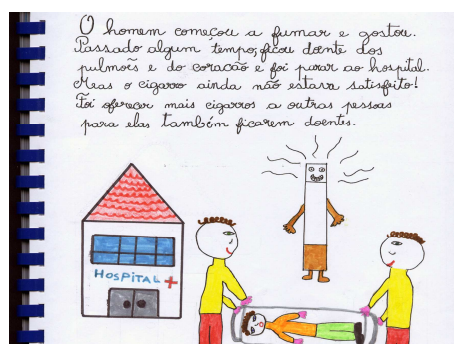 O homem começou a fumar e gostou.
Passado algum tempo, ficou doente dos
pulmões e do coração e foi parar ao hospital.
Mas o cigarro ainda não estava satisfeito!
Foi oferecer mais cigarros a outras pessoas
para elas também ficarem doentes.
HOSPITAL